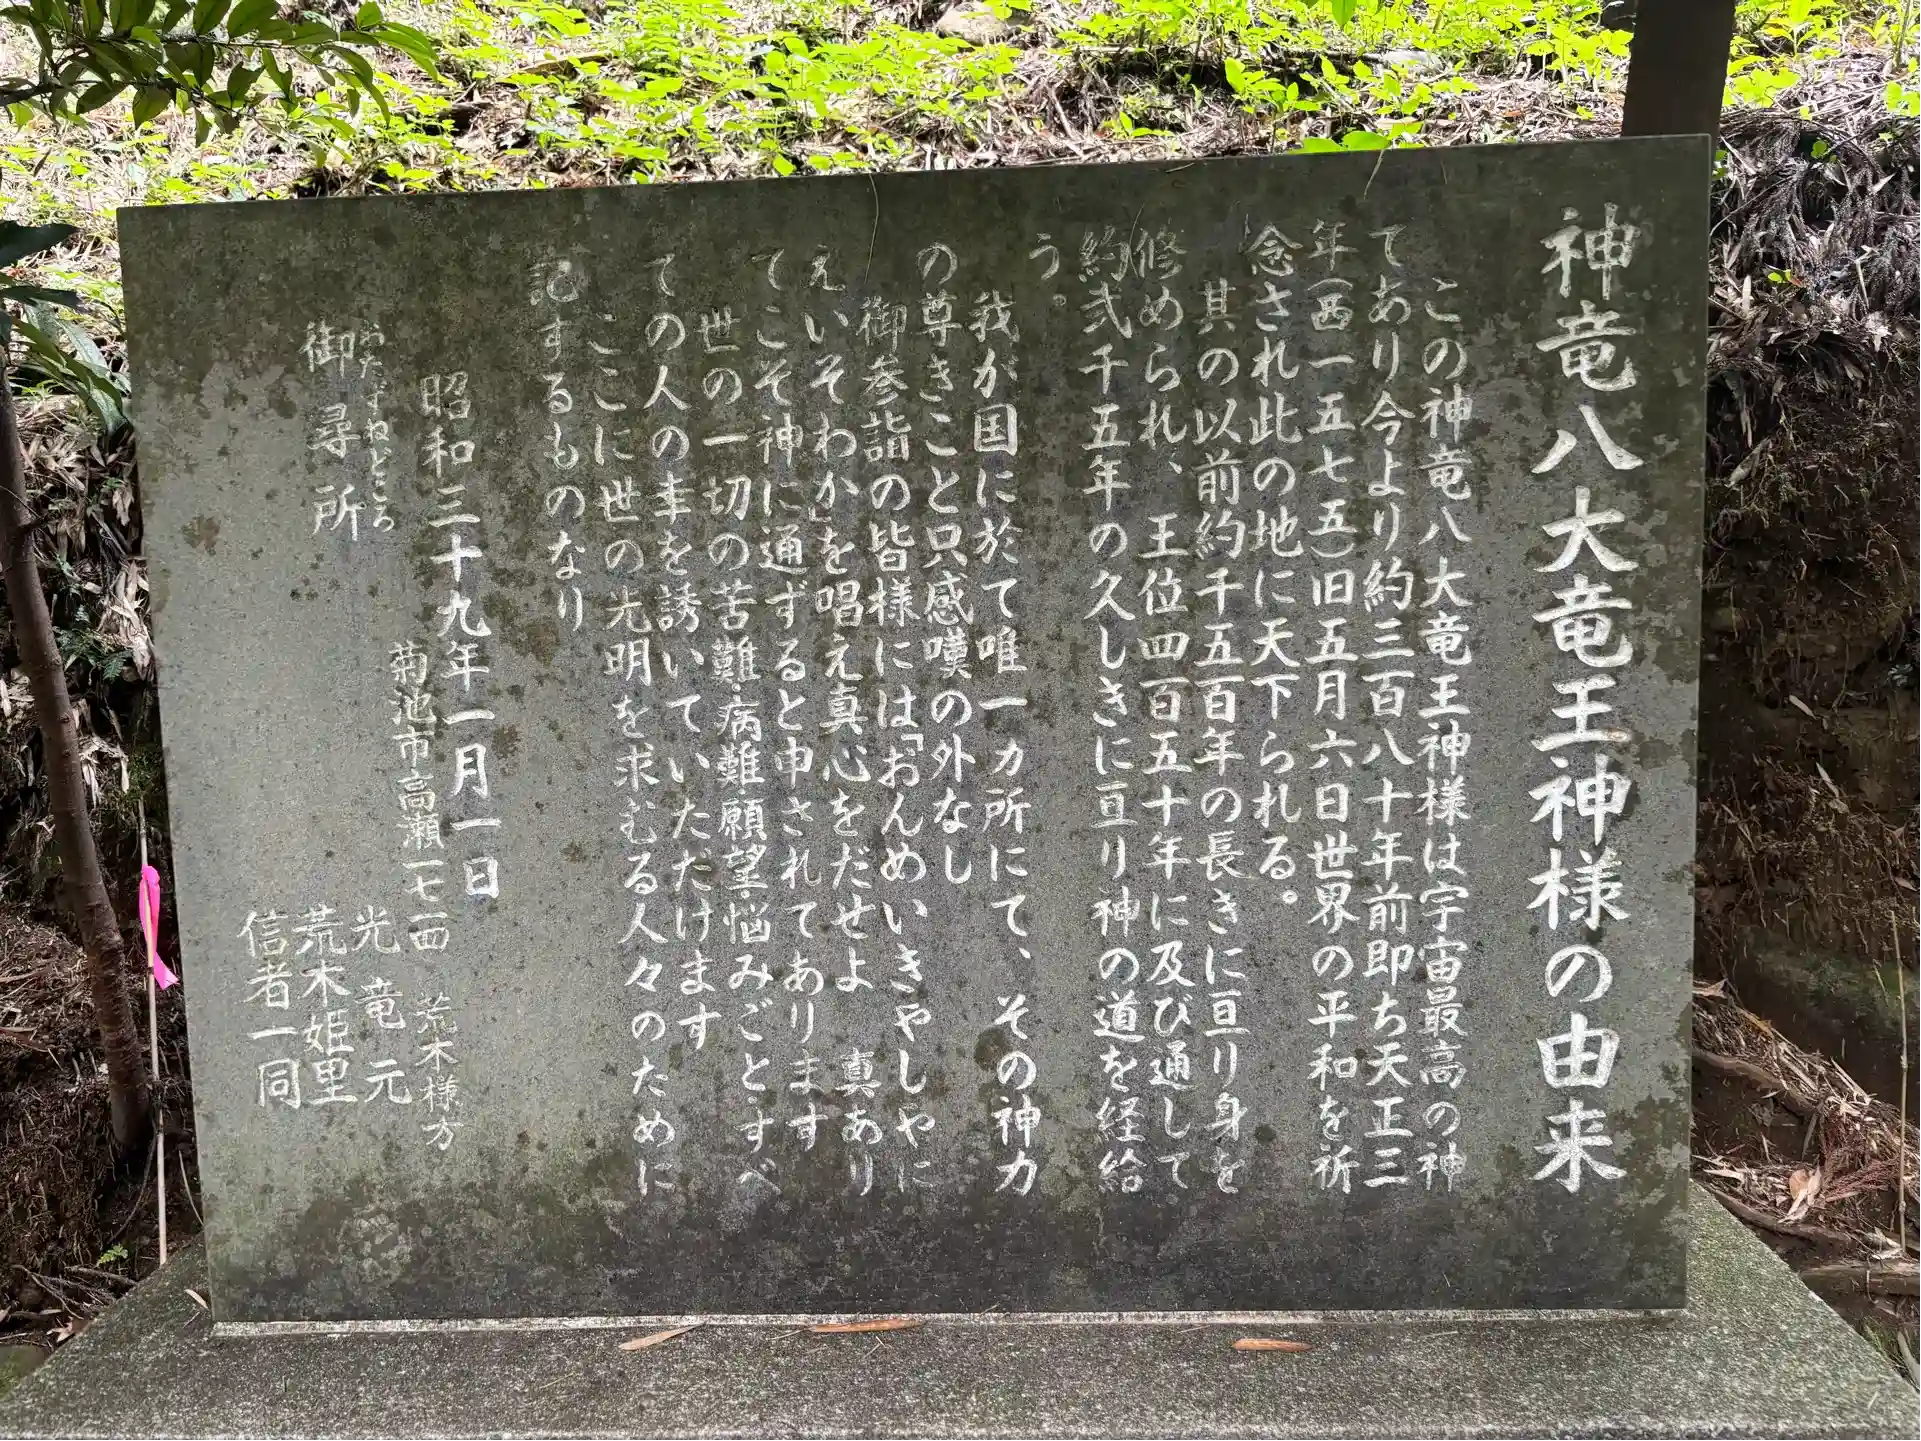 神竜八大竜王神様の由来
この神竜八大竜王神様は宇宙最高の神
てあり今より約三百八十年前即ち天正三
年(西一五七五)旧五月六日世界の平和を祈
念され此の地に天下られる。
其の以前約千五百年の長きに亘り身を
修められ、王位四百五十年に及び通して
約弐千五年の久しきに亘り神の道を経給
う。
我が国に於て唯一カ所にて、その神力
の尊きこと只感嘆の外なし
御参詣の皆様には「おんめいきやしやに
えいそわか」を唱え真心をだせよ 真あり
てこそ神に通ずると申されてあります
世の一切の苦難・病難・願望・悩みごと・すべ
ての人の幸を誘いていただけます
ここに世の光明を求むる人々のために
記するものなり
昭和三十九年一月一日
おたずねどころ
御尋所
菊池市高瀬一七一四 荒木様方
光竜元
荒木姫里
信者一同